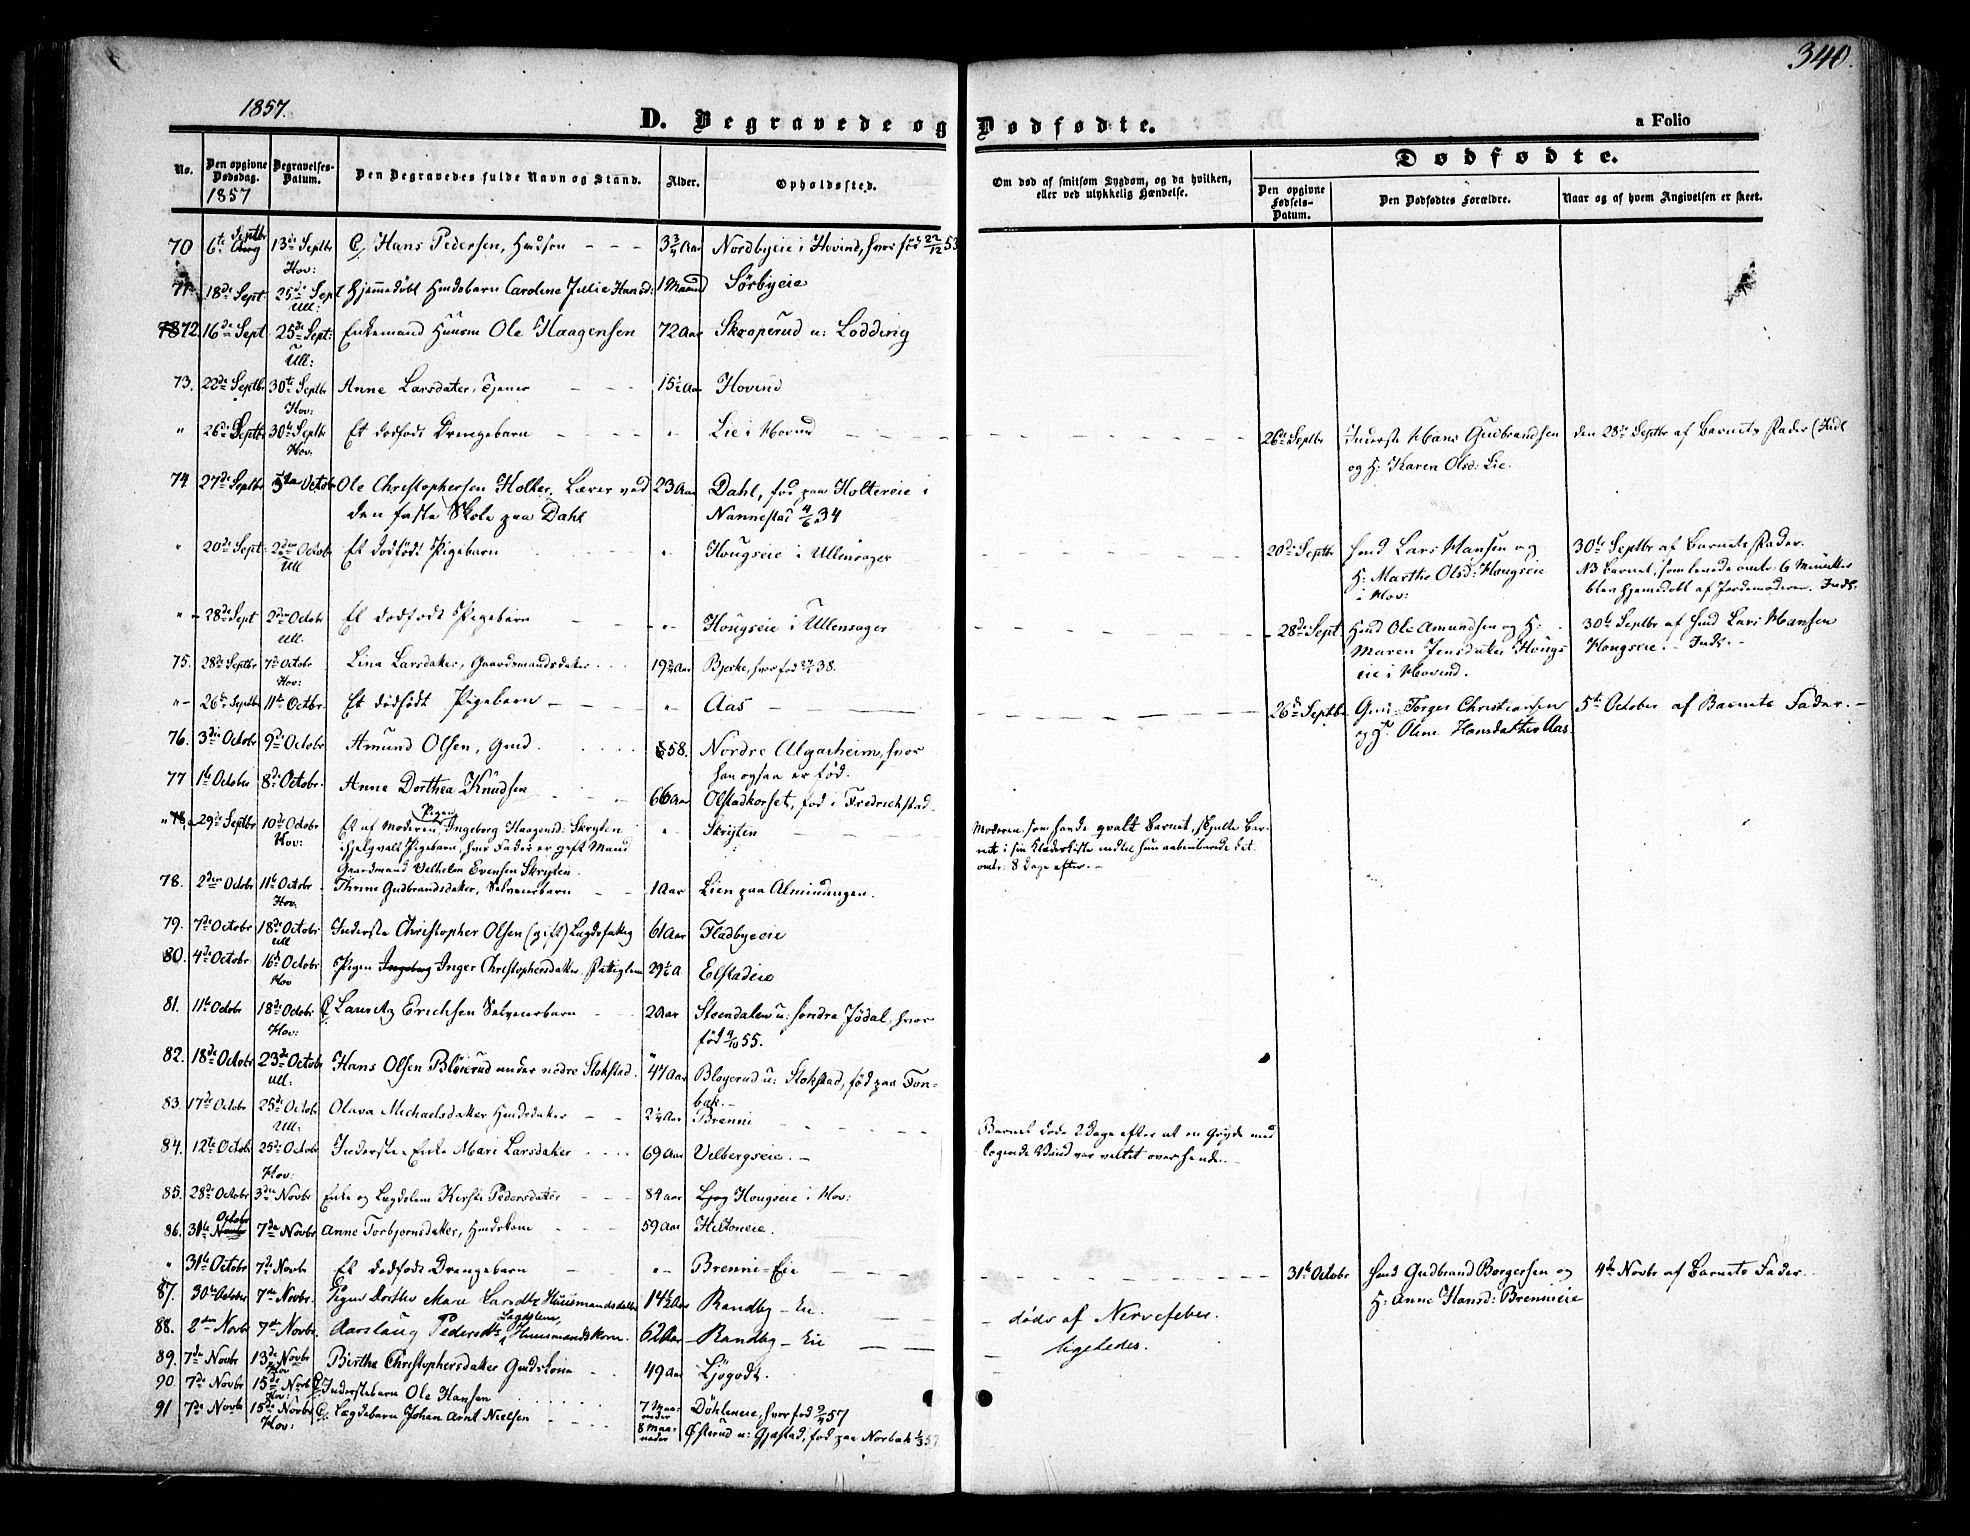 340.
1857.
D. Begravede og Dødfødte.
a Folio
No.
Den opgivne Dødsdag.
1857
Begravelses-Datum.
Den Begravedes fulde Navn og Stand.
Alder.
Opholdssted.
Om død af smitsom Sygdom, og da hvilken, eller ved ulykkelig Hændelse.
Dødfødte.
Den opgivne Fødsels-Datum.
Den Dødfødtes Forældre.
Naar og af hvem Angivelsen er skeet.
70 6te Septbr 13de Septbr Hov: Hans Pedersen, Hmdsøn 3 3/4 Aar Nordbyeie i Hovind, hvor fød 22/12 53
71 18de Sept 25de Sept Ull: Hjemmedøbt Hmdsbarn Caroline Julie Hansd: 1 Maaned Sørbyeie
72 16de Sept 25de Sept: Ull: Enkemand Huusm Ole Haagensen 72 Aar Skraperud u: Lodding
73. 22de Septbr 30te Septbr Hov: Anne Larsdater, Tjener 15 1/2 Aar Hovind
" 26de Septbr 30te Septbr Hov. Et dødfødt Drengebarn " Lie i Hovind 26de Septbr Inderste Hans Gudbrandsen den 28de Septbr af Barnets Fader (Indl
og H: Karen Olsd: Lie.
74 27de Septbr 5te Octobr Ole Christophersen Holter, Lærer ved 23 Aar Dahl, fød paa Holtereie i
den faste Skole paa Dahl Nannestad 4/6 34
" 20de Sept: 2den Octobr Ull Et dødfødt Pigebarn " Hougseie i Ullensager 20de Septbr Hmd Lars Hansen og 30te Septbr af Barnets Fader.
H: Marthe Olsd: Hougseie NB Barnet, som levede omtr: 6 Minutter
i Hov: blev hjemedøbt af Jordemoderen. Indl.
" 28de Sept 2den Octobr Ull. Et dødfødt Pigebarn " Hougseie i Ullensager 28de Sept. Hmd Ole Amundsen og H: 30te Septbr af Hmd Lars Hansen
Maren Jensdater Hougs- Hougseie. Indl.
eie i Hovind.
75. 28de Septbr 7de Octobr Hov: Lina Larsdater, Gaardmandsdater 19 Aar Bjerke, hvor fød 38.
" 26de Septbr 11te Octbr. Et dødfødt Pigebarn " Aas 26de Septbr Gmd Torger Christiansen 5te October af Barnets Fader.
og H. Oline Hansdatter Aas.
76. 3die Octobr 9de Octobr Amund Olsen, Gmd. 58. Nordre Algarheim, hvor
han ogsaa er fød.
77 1te Octobr 8de Octobr. Anne Dorthea Knudsen 66 Aar Olstadkorset, fød i Fredrichstad
" 29de Septbr 10de Octobr Hov: Et af Moderen, Pigen Ingeborg Haagensd: Skryten " Skryten Moderen, som havde qvalt Barnet, skjulte Bar-
ihjelqvalt Pigebarn, hvis Fader er gift Mand net i sin Klædeskiste indtil hun aabenbarede det
Gaardmand Vilhelm Evensen Skryten. omtr: 8 Dage efter.
78. 2den Octobr 11te Octobr Hov. Thrine Gudbrandsdater, Selveierbarn 1 Aar Lien paa Almindingen.
79. 7de Octobr 18de Octobr Ull Inderste Christopher Olsen (gift) Lægdsfattig 61 Aar Fladbyeie
80. 4de Octobr 16de Octobr Hov Pigen Inger Christophersdater, Fattiglem 29 1/2 A Elstadeie
81. 11te Octobr 18de Octobr Hov: Lauritz Erichsen Selveierbarn 2 Aar Steendalen u: søndre Jødal, hvor
fød 9/10 55.
82. 18de Octobr 23de Octobr Ull: Hans Olsen Bløierud under nedre Slokstad. 47 Aar Bløyerud u: Slokstad, fød paa Ton-
bak.
83. 17de Octobr 25de Octobr Ull: Olava Michaelsdater Hmdsdater 2 1/4 Aar Brenni Barnet døde 2 Dage efter at en Gryde med
kogende Vand var veltet over hende.
84. 12te Octobr 25de Octobr Hov: Inderste-Enke Mari Larsdater 69 Aar Velbergseie.
85. 28de Octobr 3die Novbr Enke og Lægdslem Kersti Pedersdater 84 aar Ljøg Hougseie i Hov:
86. 31te Octobr 7de Novbr Anne Torbjørnsdater, Hmdskone 59 Aar Hiltoneie.
" 31te Octobr 7de Novbr Et dødfødt Drengebarn " Brenni-Eie 31te Octobr Hmd Gudbrand Borgersen og 4de Novbr af Barnets Fader.
H: Anne Hansd: Brennieie
87. 30te October 7de Novbr. Pigen Dorthe Marie Larsdtr Huusmandsdatter 14 1/2 Aar Randby-Eie. døde af Nervefeber.
88. 2den Novbr 7de Novbr. Aaslaug Pedersdtr Lægdslem, Huusmandskone. 62 Aar Randby-Eie ligeledes.
89. 7de Novbr 13de Novbr Birthe Christophersdater Gmdskone 49 Aar Ljøgodt.
90 7de Novbr 15de Novb Hov: Inderstebarn Ole Hansen 7 Maaneder Døhleneie, hvor fød 57
91 7de Novbr 15de Novbr Hov: Lægdebarn Johan Arnt Nielsen 8 Maaneder Østerud u: Gjæstad, fød paa Norbak 1/3 57